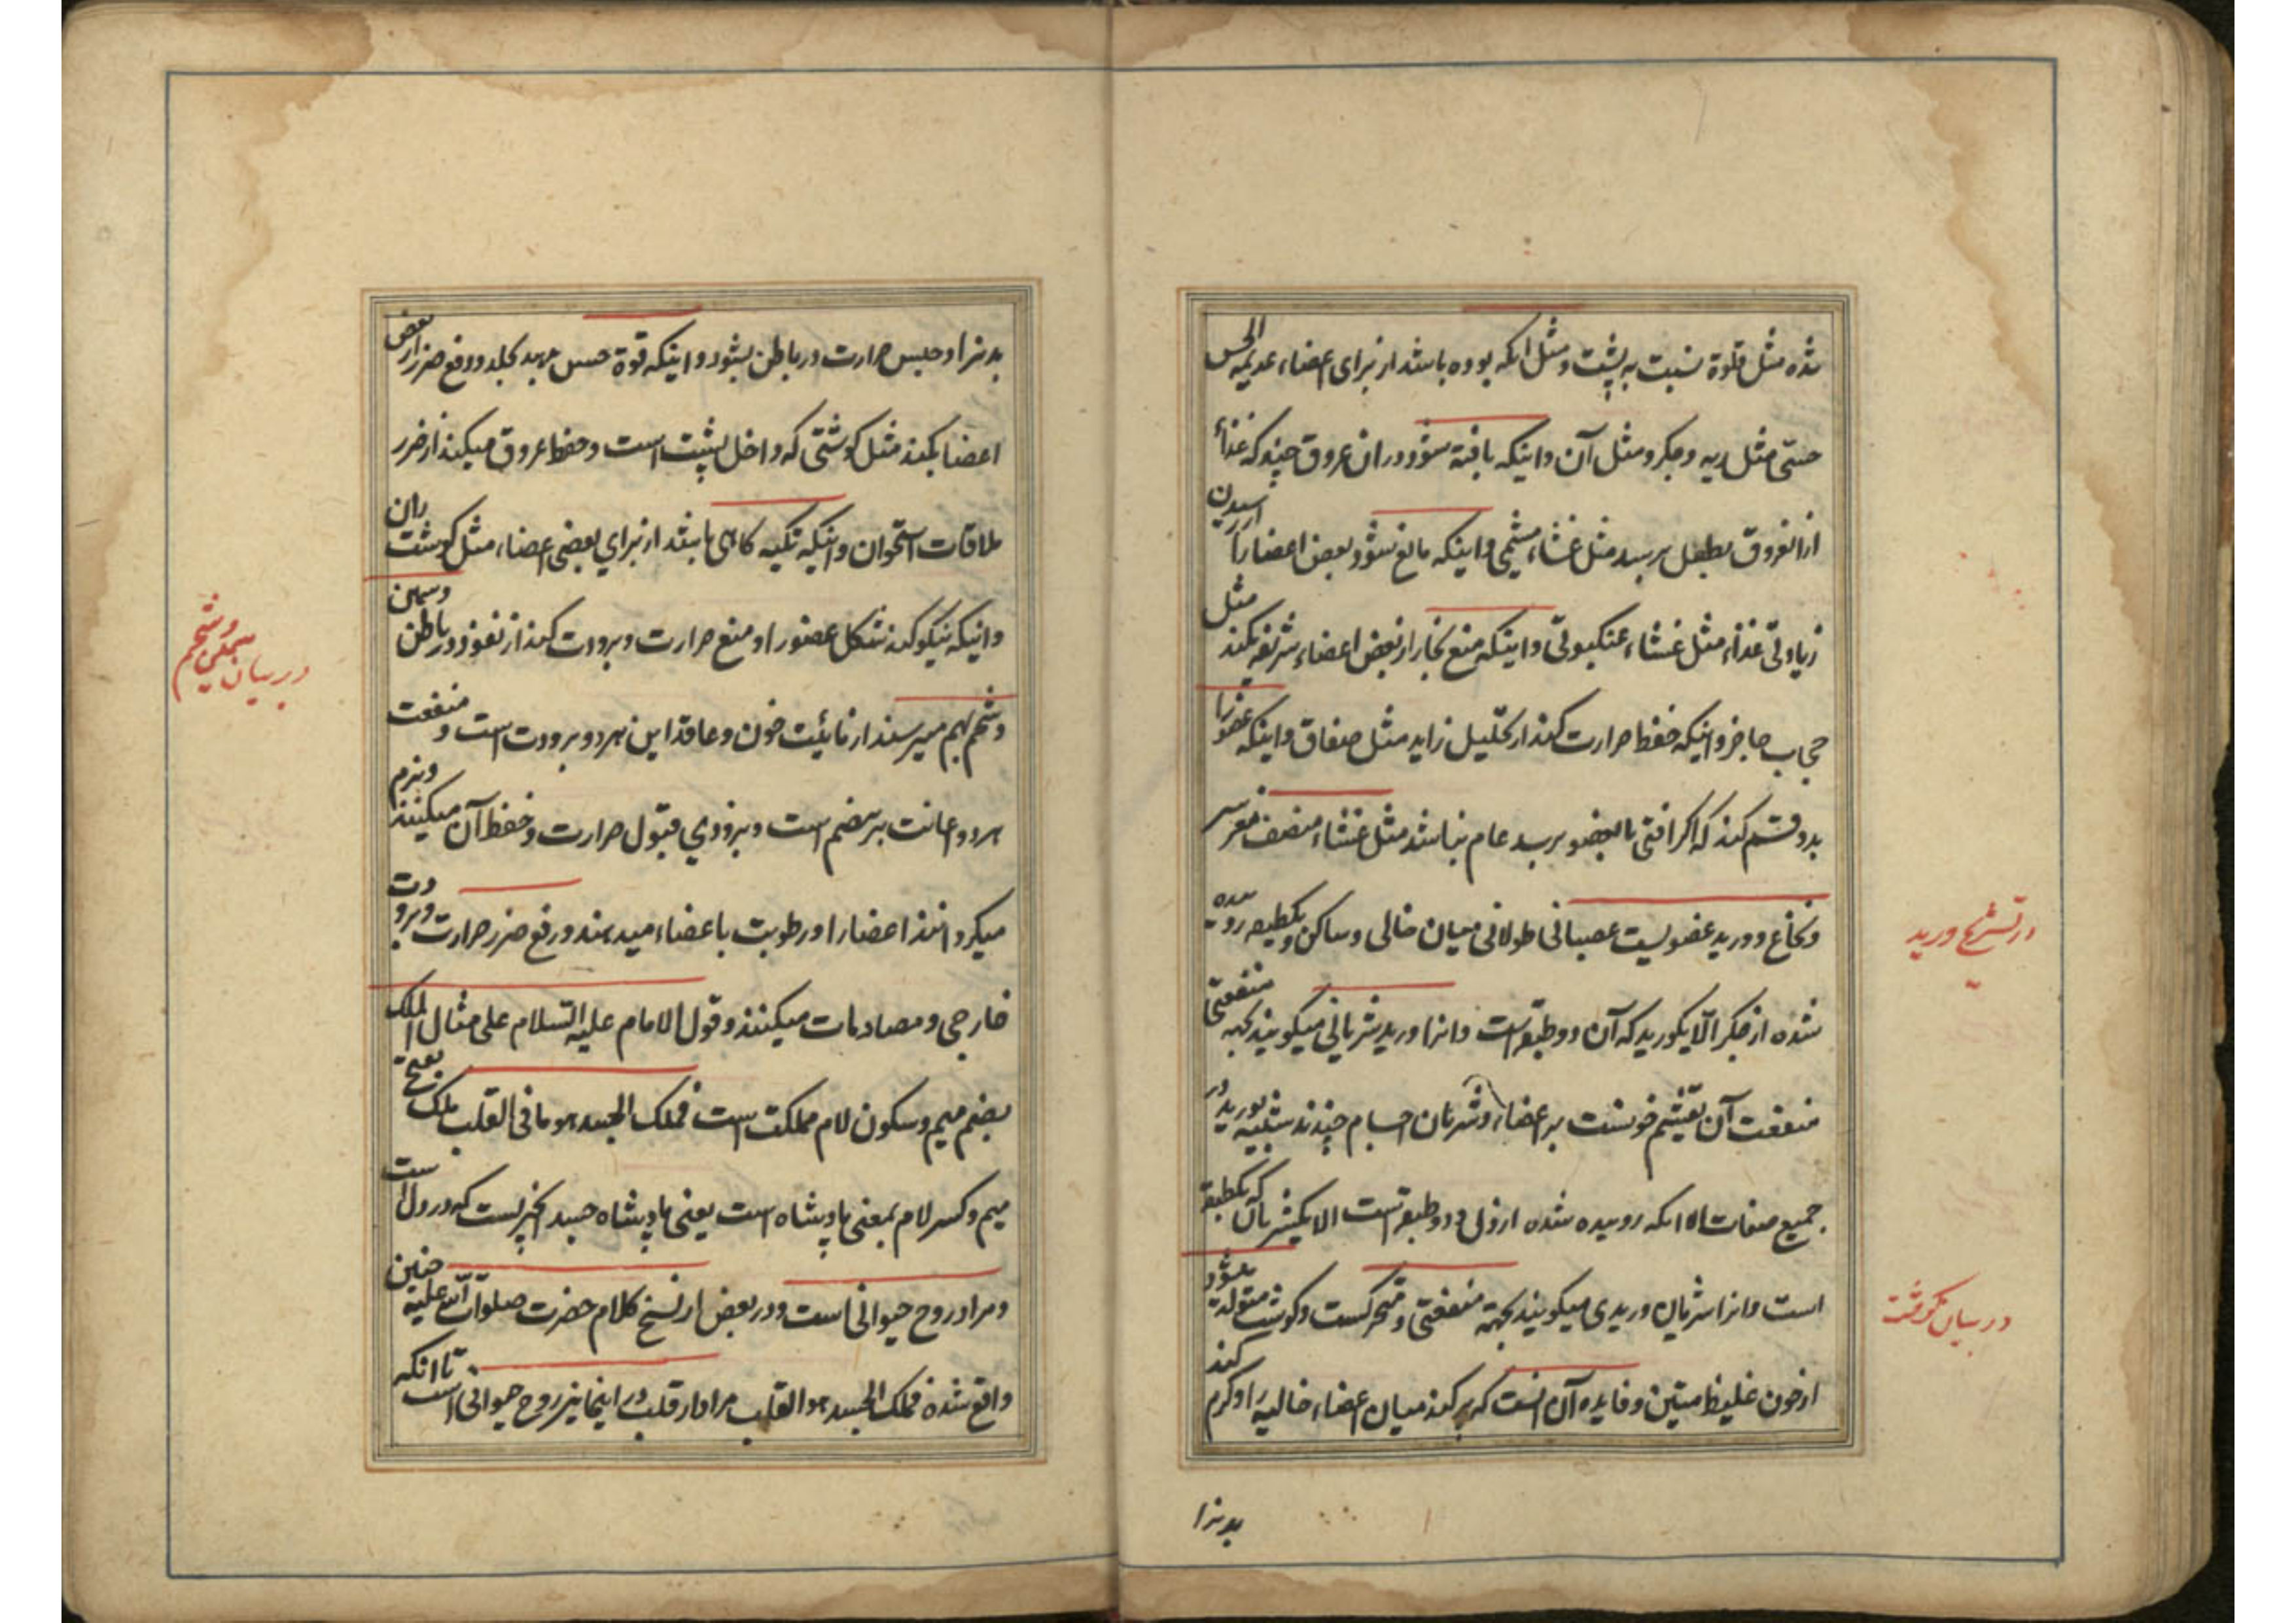 شده مثل قلوة نسبت به پشت و مثل انکه بوده باشد از برای اعضاء عدیمة الحس
حسی مثل ریه و جکر و مثل آن و اینکه بافته شود در ان عروق چند که غذاء
از انعروق بطفل برسد مثل غشاء مشیمی و اینکه مانع شود بعض اعضا را از رسیدن
زیادتی غذاء مثل غشاء عنکبوتی و اینکه منع بخار از بعض اعضاء شریفه بکند مثل
حجاب حاجز و اینکه حفظ حرارت کند از تحلیل زاید مثل صفاق و اینکه عضو را
بدو قسم کند که اکر افتی بالعضو برسد عام نباشد مثل غشاء منصف
در تشریح ورید
و نخاع و ورید عضویست عصبانی طولانی میان خالی و ساکن و یکطبقه روییده
شده از جکر الا یکورید که آن دو طبقه است و انرا ورید شریانی میکویند بجهة منفعتی
منفعت آن تقسیم خونست بر اعضاء و شریان اجسام چندند شبیه بورید در
جمیع صفات الا انکه روییده شده از دل و دو طبقه است الا یکشریان که یکطبقه
در بیان کوشت
است و انرا شریان وریدی میکویند بجهة منفعتی و متحرکست و کوشت متولد میشود
از خون غلیظ متین و فایده آن انست که پر کند میان اعضاء خالیه را و کرم کند
بدنرا
بدنرا و حبس حرارت در باطن بشود و اینکه قوة حس دهد بجلد و دفع ضرر از بعض
اعضا بکند مثل کوشتی که داخل پشت است و حفظ عروق میکند از ضرر
ملاقات استخوان و اینکه تکیه کاهی باشد از برای بعضی اعضاء مثل کوشت ران
در بیان سمین و شحم
و اینکه نیکو کند شکل عضو را و منع حرارت و برودت کند از نفوذ در باطن و سمین
و شحم بهم میرسند از مائیت خون و عاقد این هر دو برودت است و منفعت
هر دو اعانت بر هضم است و بزودی قبول حرارت و حفظ آن میکنند و نرم
میکردانند اعضا را و رطوبت باعضاء میدهند و رفع ضرر حرارت و برودت
خارجی و مصادمات میکنند و قول الامام علیه السلام علی مثال الملک
بضم میم و سکون لام مملکت است فملک الجسد هو ما فی القلب ملک بفتح
میم و کسر لام بمعنی پادشاه است یعنی پادشاه جسد انچیزیست که در دل است
و مراد روح حیوانی است و در بعض از نسخ کلام حضرت صلوات الله علیه چنین
واقع شده فملک الجسد هو القلب مراد از قلب در اینجا نیز روح حیوانی است تا انکه